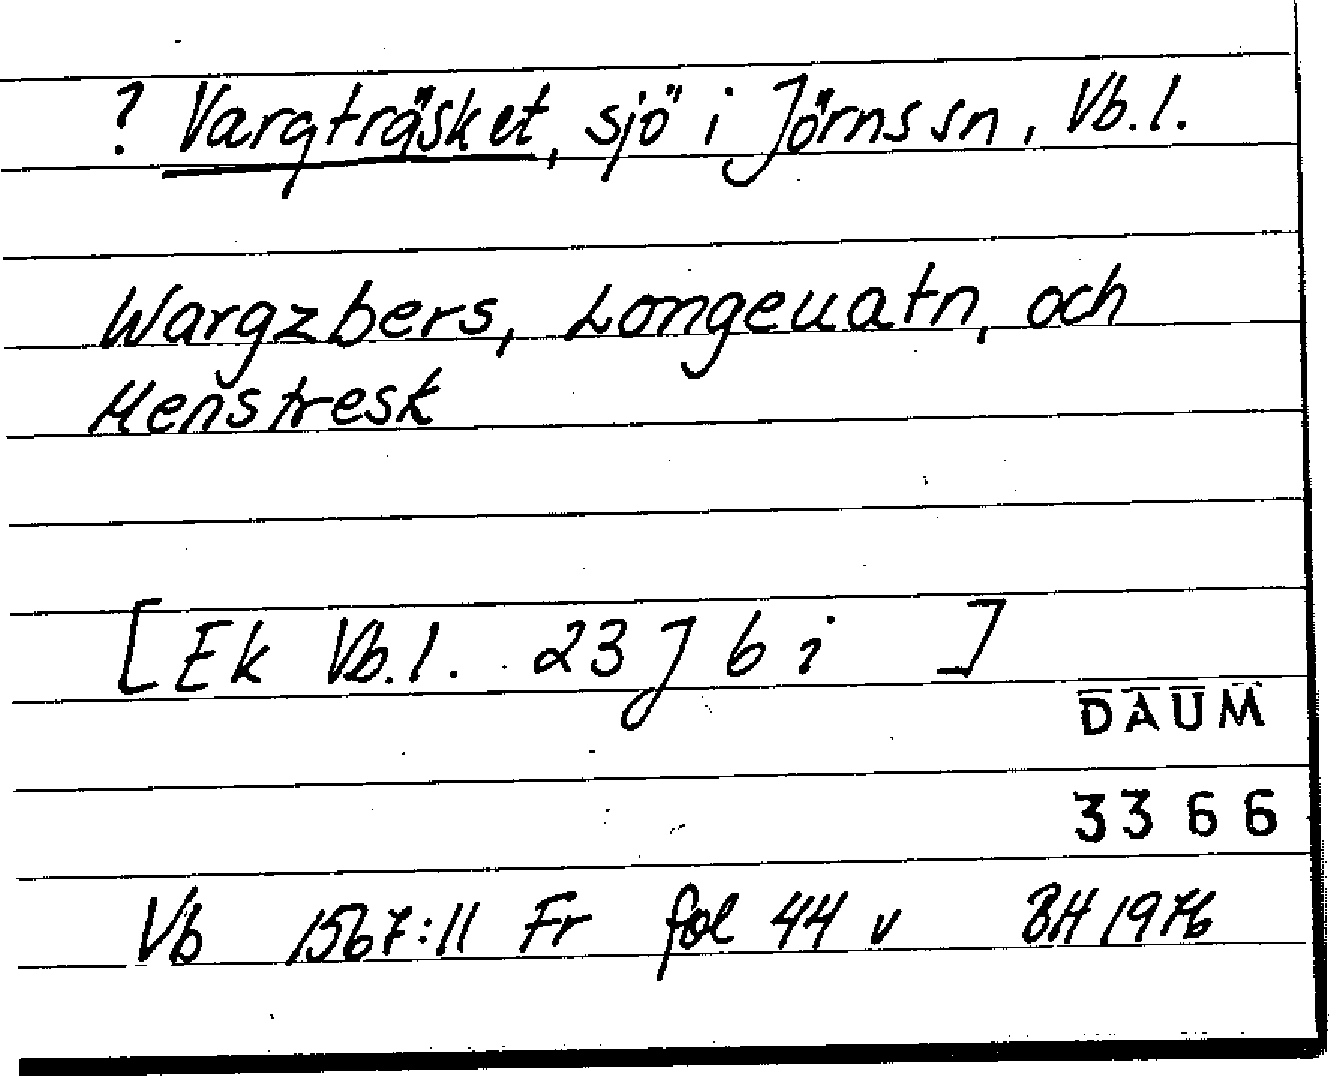 ? Vargträsket, sjö i Jörns sn, Vb.l.
Wargzbers, Longeuatn, och
Menstresk
[Ek Vb.l. 23 J 6 i ]
DAUM
3366
Vb 1567:11 Fr fol 44 v BH 1976